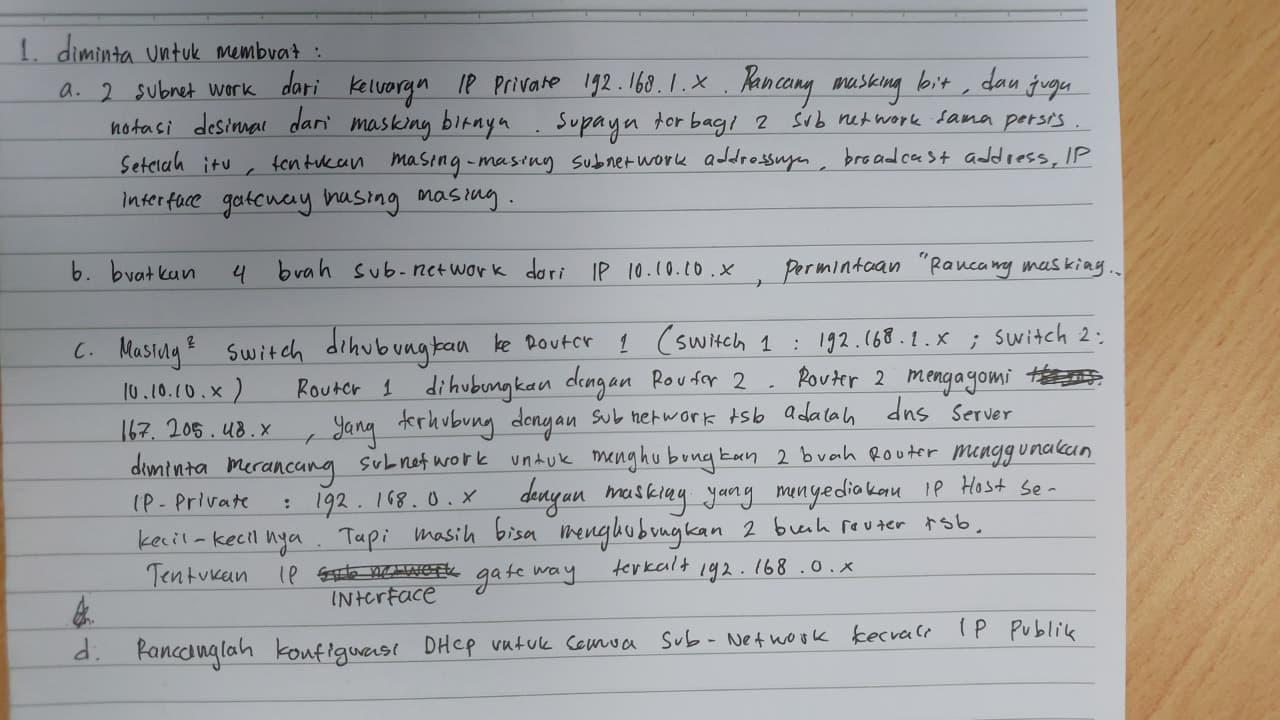 1. diminta untuk membuat :
a. 2 subnet work dari keluarga IP Private 192.168.1.x. Rancang masking bit, dan juga
notasi desimal dari masking bitnya. Supaya terbagi 2 sub network sama persis.
Setelah itu, tentukan masing-masing subnetwork addressnya, broadcast address, IP
interface gateway masing masing.
b. buatkan 4 buah sub-network dari IP 10.10.10.x, permintaan "Rancang masking..
c. Masing² switch dihubungkan ke Router 1 (switch 1 : 192.168.1.x ; switch 2:
10.10.10.x) Router 1 dihubungkan dengan Router 2. Router 2 mengagomi
167.205.48.x, yang terhubung dengan subnetwork tsb adalah dns server
diminta merancang subnetwork untuk menghubungkan 2 buah Router menggunakan
IP-Private : 192.168.0.x dengan masking yang menyediakan IP Host se-
kecil-kecilnya. Tapi masih bisa menghubungkan 2 buah router tsb.
Tentukan IP sub network gateway terkait 192.168.0.x
INterface
d. Rancanglah konfigurasi DHCP untuk semua Sub-Network kecuali IP Publik